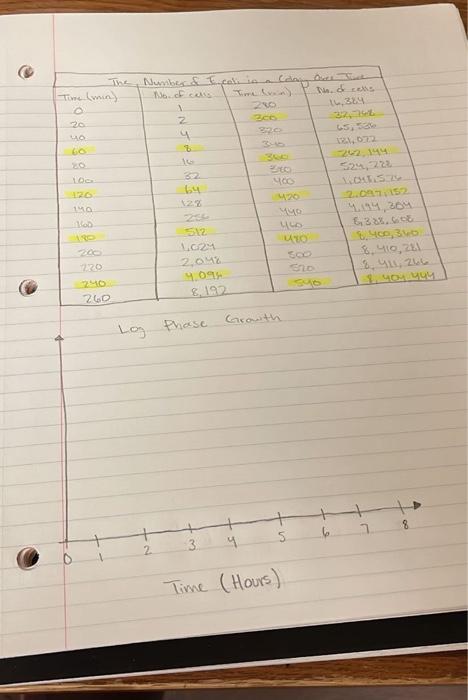 The Number of E. coli in a Colony Over Time
Time (min) No. of cells Time (min) No. of cells
0 1 280 16,384
20 2 300 32,768
40 4 320 65,536
60 8 340 131,072
80 16 360 262,144
100 32 380 524,288
120 64 400 1,048,576
140 128 420 2,097,152
160 256 440 4,194,304
180 512 460 8,388,608
200 1,024 480 8,400,360
220 2,048 500 8,410,281
240 4,096 520 8,411,266
260 8,192 540 8,404,444
Log Phase Growth
0 1 2 3 4 5 6 7 8
Time (Hours)